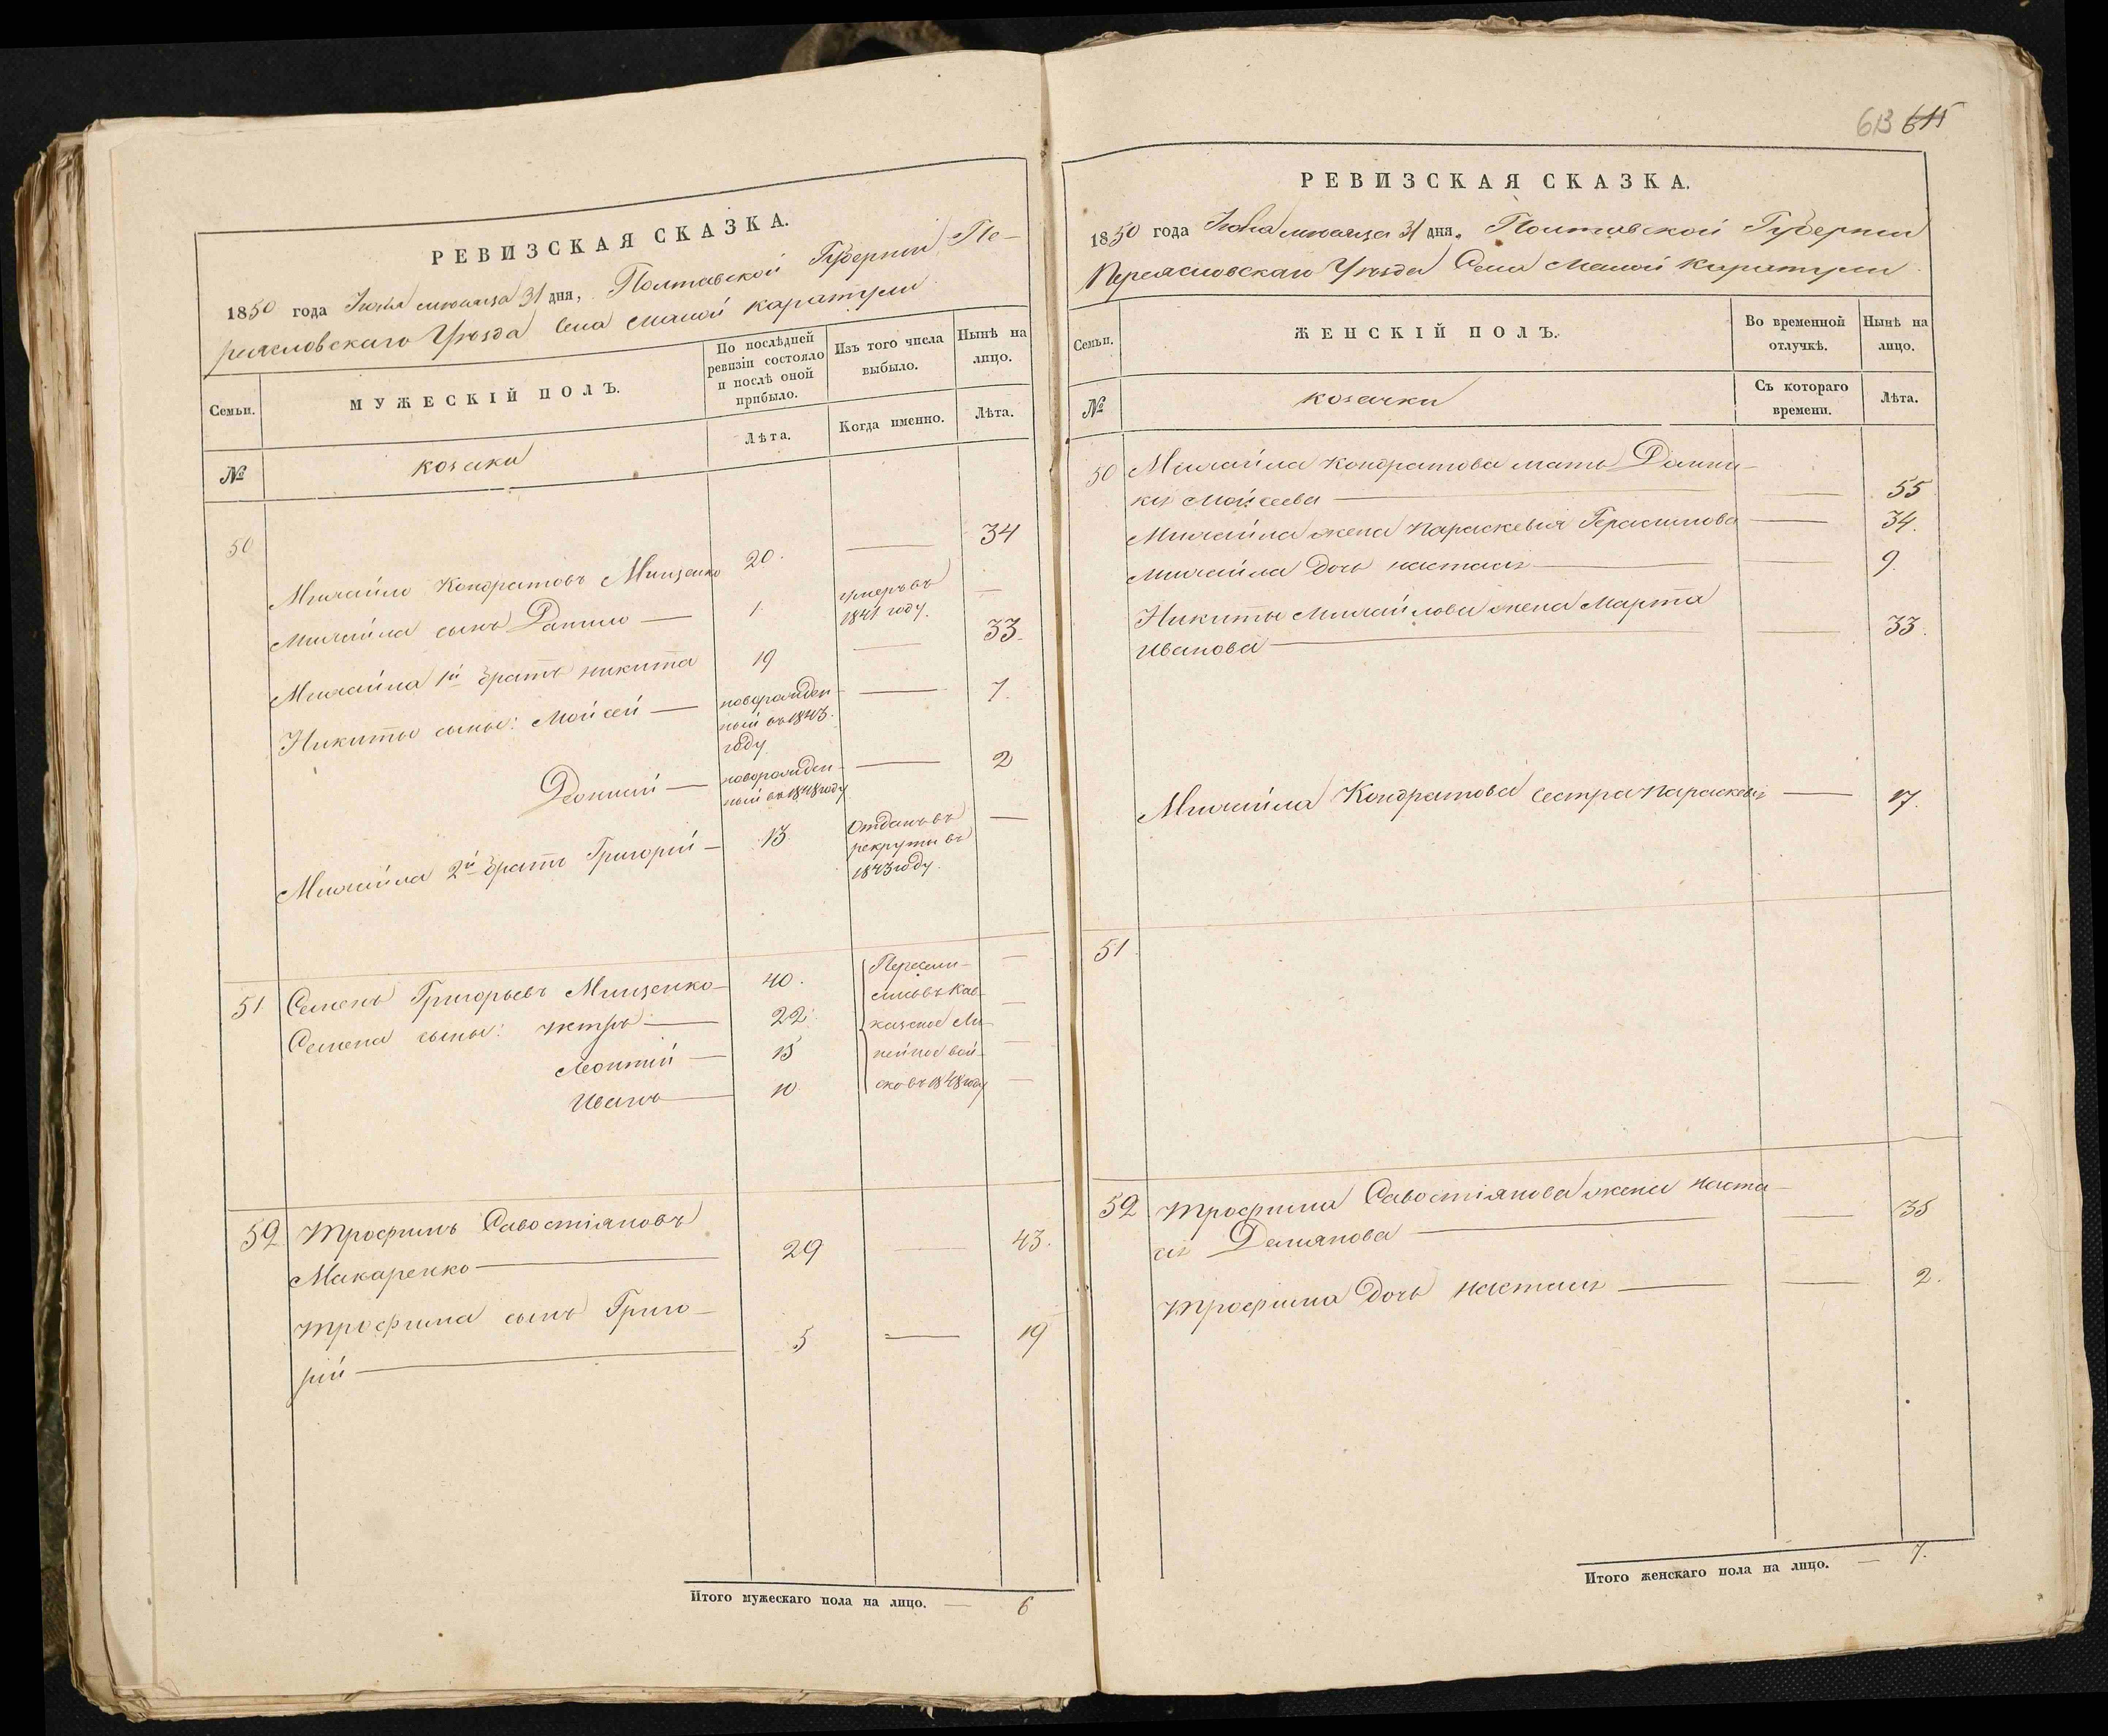 РЕВИЗСКАЯ СКАЗКА.
1850 года Июля месяца 31 дня, Полтавской Губернии, Пе-
реяславскаго Уѣзда Села Малой Каратули
Семьи.
МУЖЕСКІЙ ПОЛЪ.
По послѣдней
ревизіи состояло
и послѣ оной
прибыло.
Изъ того числа
выбыло.
Нынѣ на
лицо.
Лѣта.
Когда именно.
Лѣта.
№
козаки
50
Михайло Кондратовъ Мищенко 20. — 34
Михайла сынъ Данило — 1. умеръ въ
1841 году. —
Михайла 1й братъ Никита 19 — 33.
Никиты сыны: Мойсей — новорожден-
ный въ 1843.
году — 7.
Леонтий — новорожден-
ный въ 1848 году — 2
Михайла 2й братъ Григорій — 13. Отданъ въ
рекруты въ
1843 году. —
51 Семенъ Григорьевъ Мищенко — 40. Пересели- —
Семена сыны: Петръ — 22. лись въ Кав- —
казское Ли-
Леонтий — 15 нейное вой- —
Иванъ — 10. ско въ 1848 году —
52 Трофимъ Савостіяновъ
Макаренко — 29 — 43.
Трофима сынъ Григо-
рій — 5 — 19
Итого мужескаго пола на лицо. — 6
613 615
РЕВИЗСКАЯ СКАЗКА.
1850 года Июля месяца 31 дня. Полтавской Губернии
Переясловскаго Уѣзда Села Малой Каратули
Семьи.
ЖЕНСКІЙ ПОЛЪ.
Во временной
отлучкѣ.
Нынѣ на
лицо.
№
козачки
Съ котораго
времени.
Лѣта.
50 Михайла Кондратова мать Домни-
кія Мойсеева — — 55
Михайла жена Параскевія Герасимова — 34.
Михайла дочь Настасія — — 9.
Никиты Михайлова жена Марта
Иванова — — 33.
Михайла Кондратова сестра Параскевія — 17.
51
52 Трофима Савостіянова жена Наста-
сія Демянова — — 35
Трофима дочь Настасія — — 2.
Итого женскаго пола на лицо. — 7.